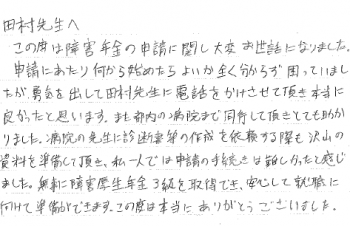 田村先生へ
この度は障害年金の申請に関し大変お世話になりました。
申請にあたり何から始めたらよいか全く分からず困っていまし
たが勇気を出して田村先生に電話をかけさせて頂き本当に
良かったと思います。また都内の病院まで同行して頂きとても助か
りました。病院の先生に診断書等の作成を依頼する際も沢山の
資料を準備して頂き、私一人では申請の手続きは難しかったと感じ
ました。無事に障害厚生年金3級を取得でき、安心して就職に
向けて準備ができます。この度は本当にありがとうございました。